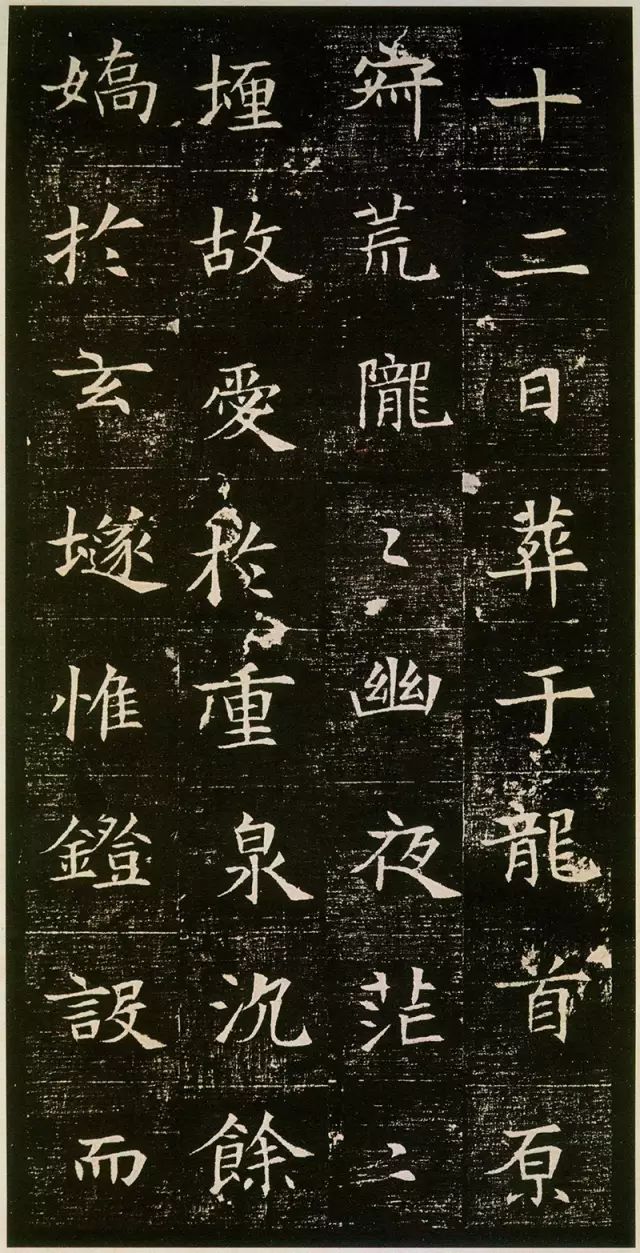 十二日葬于龍首原
寂荒隴〻幽夜茫〻
埋故愛於重泉沉餘
嬌於玄隧惟鐙設而